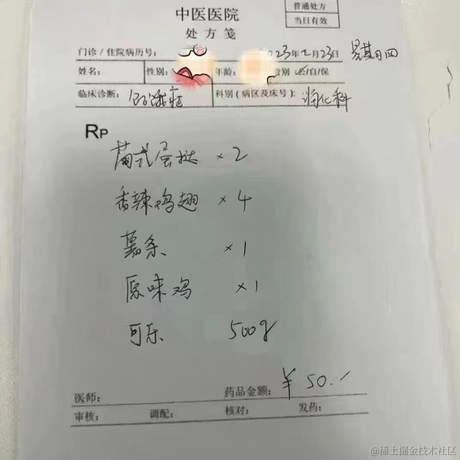 普通处方
当日有效
中医医院
处方笺
门诊/住院病历号: 2023年2月23日 星期四
姓名: 性别: 年龄: 费别: 公/自/保
临床诊断: 饥饿症 科别(病区及床号): 消化科
Rp
葡式蛋挞 ×2
香辣鸡翅 ×4
薯条 ×1
原味鸡 ×1
可乐 500g
医师: 药品金额: ¥50.-
审核: 调配: 核对: 发药:
@稀土掘金技术社区